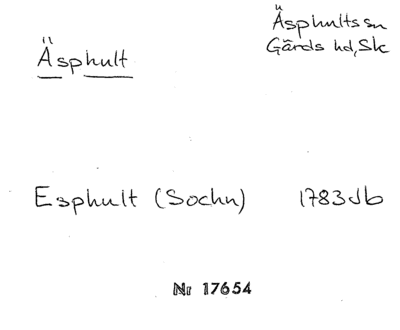 Äsphult
Äsphults sn
Gärds hd, Sk
Esphult (Sochn) 1783 Jb
Nr 17654